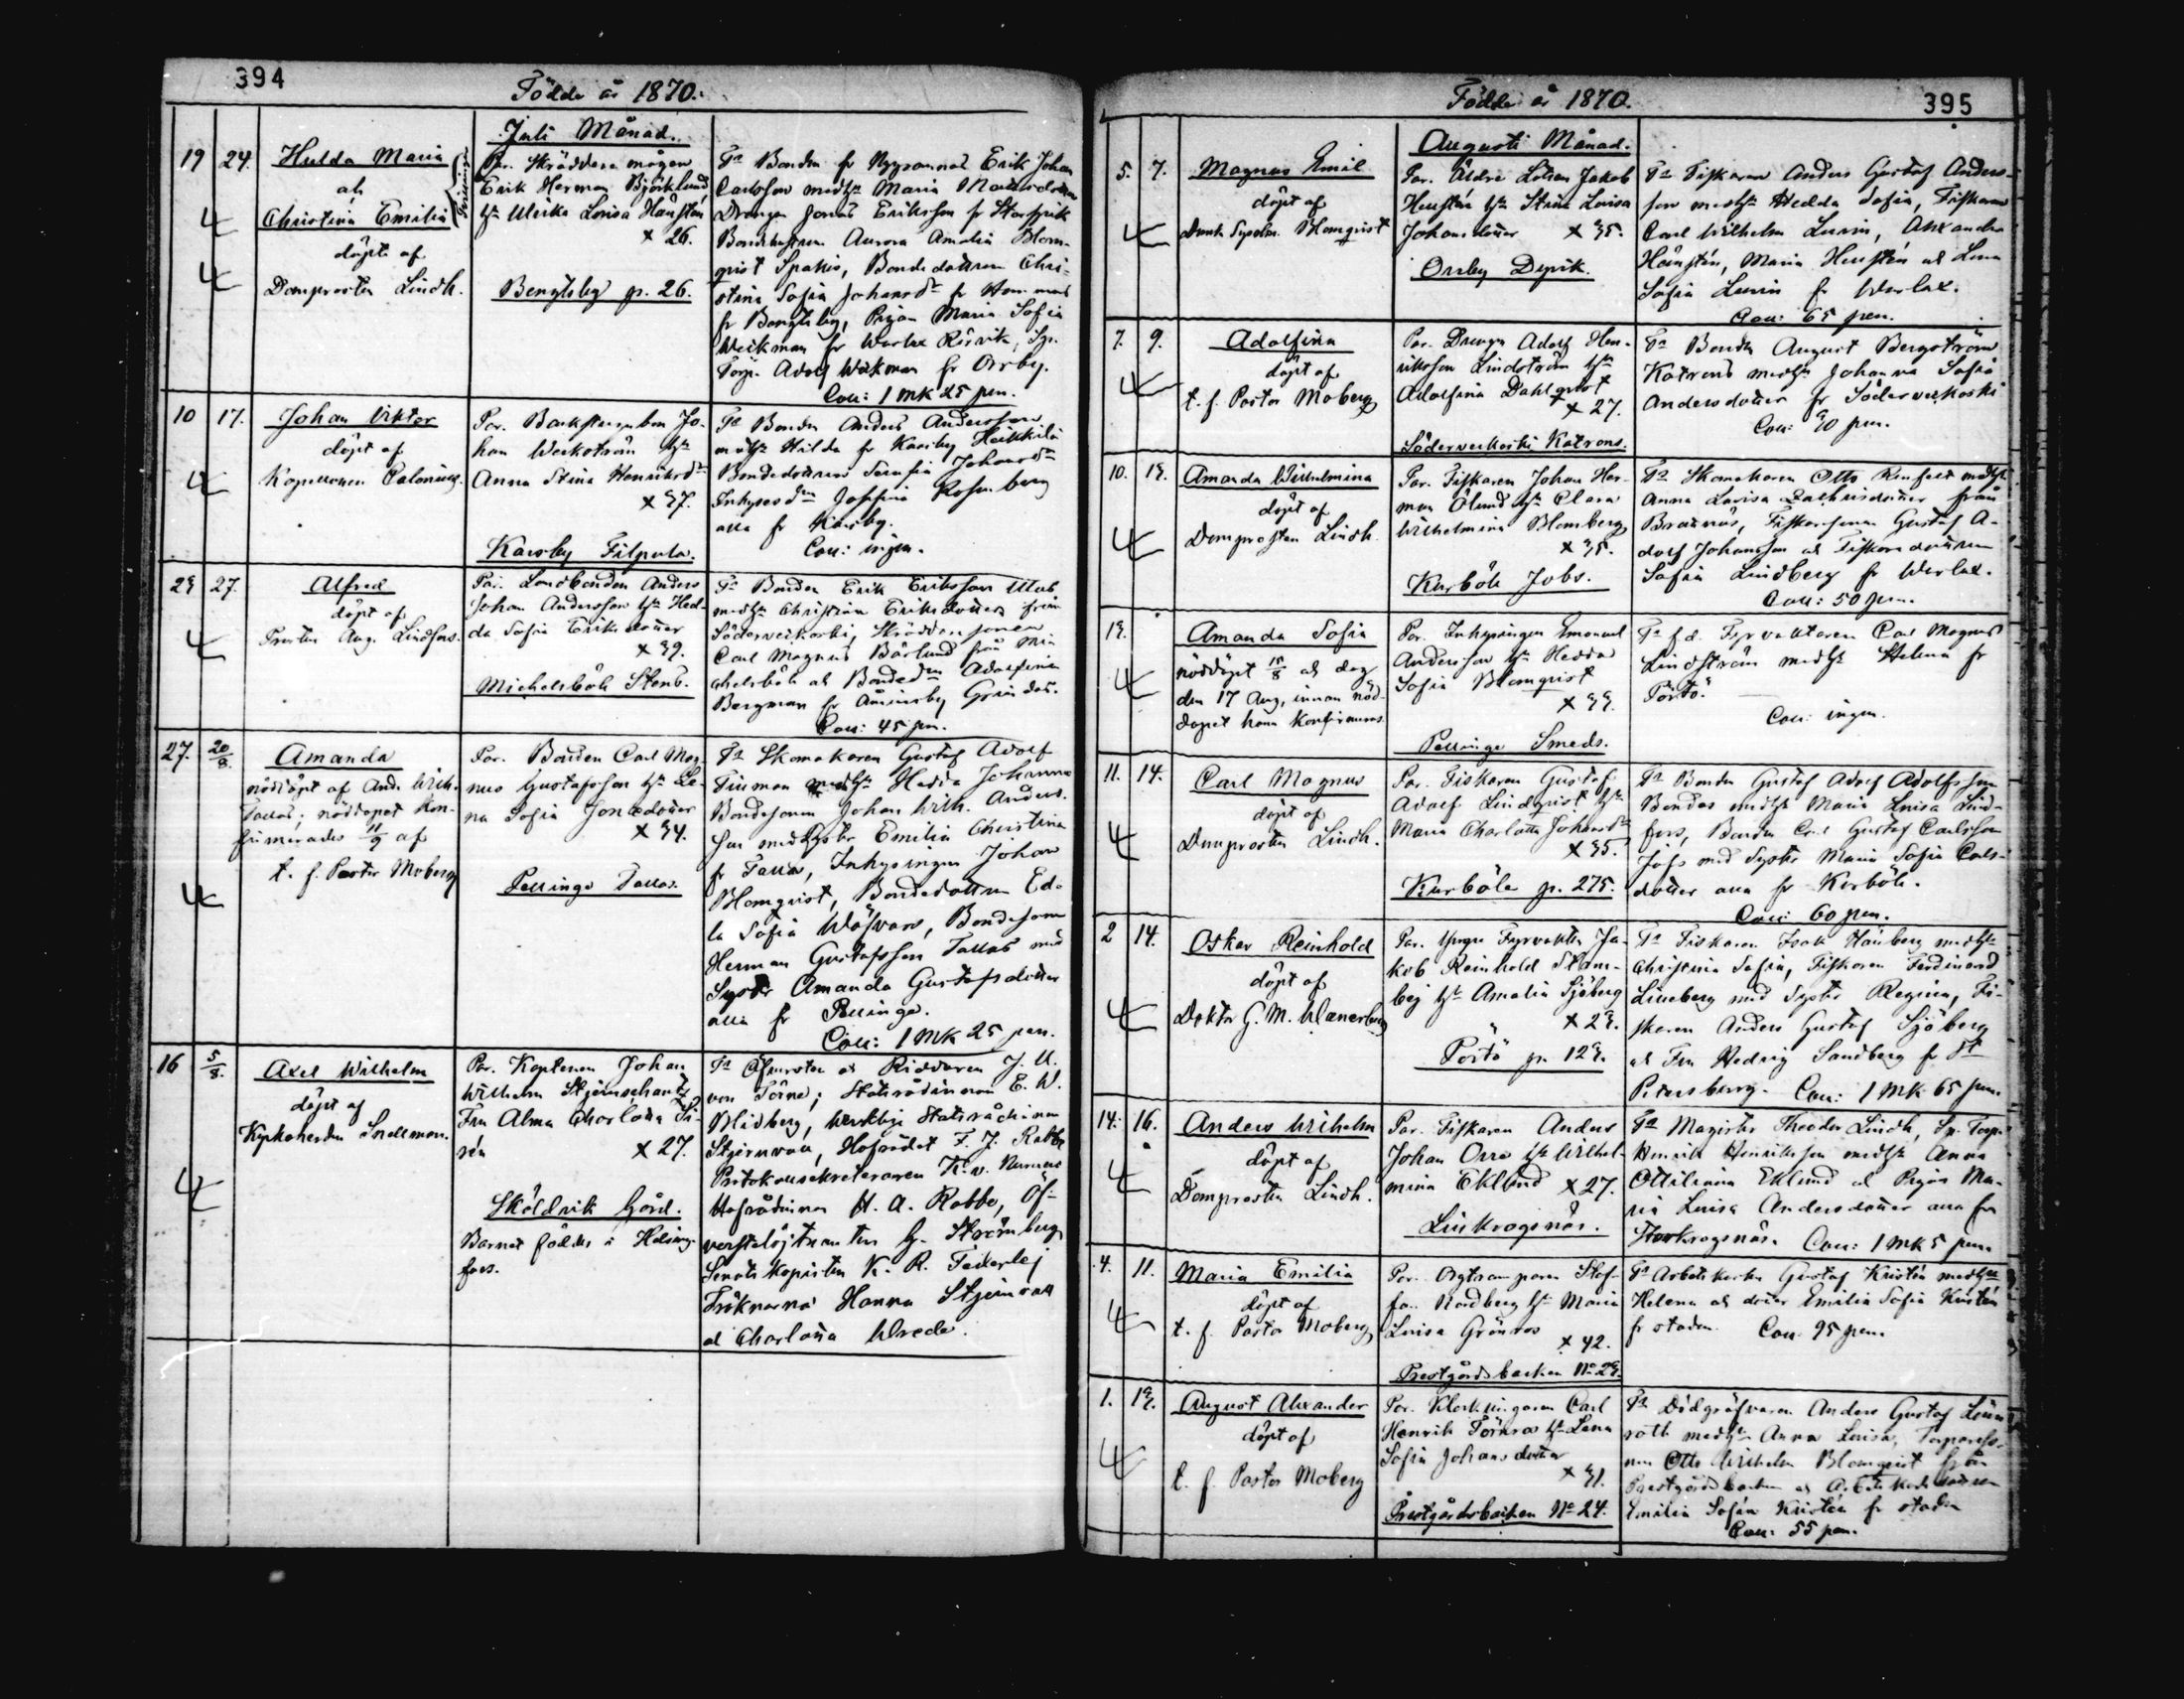 394
Födde år 1870.
Juli Månad.
19 24. Hulda Maria
och
Christina Emilia
döpte af
Domprosten Lindh.
Par. Skräddare mågen
Erik Herman Björklund
hu Ulrika Lovisa
x 26.
Bengtsby p. 26.
Fa Bonden fr Erik Johan
Carlsson medhu Maria
Drengen Jonas Eriksson fr
Bondehustrun Aurora Amalia Blom-
qvist Spakis, Bondedottren Chri-
stina Sofia Johansdr fr
fr Bengtsby, Pigan Maria Sofia
Weckman fr Warlax
Torp. Adolf Wekman fr Orrby.
Coll: 1 mk 25 pen.
10 17. Johan Viktor
döpt af
Kapellanen Calonius.
Par. Backstugubon Jo-
han Weckström hu
Anna Stina Henriksdr
x 37.
Karsby Filpula.
Fa Bonden Anders Andersson
medhu Hilda fr Karsby Heikkilä
Bondedottren Serafia Johansdr
Josefina Rosenberg
alla fr Karsby.
Coll: ingen.
23 27. Alfred
döpt af
Prosten Aug. Lindfors.
Par. Landbonden Anders
Johan Andersson hu Hed-
da Sofia Eriksdotter
x 39.
Michelsböle Stenb.
Fa Bonden Erik Eriksson
medhu Christina Eriksdotter från
Söderveckoski, Skräddaresonen
Carl Magnus Bärlund från Mi-
chelsböle och Bondedn Adolfina
Bergman fr
Coll: 45 pen.
27. 20/8. Amanda
nöddöpt af And. Wilh.
Tallas; nöddopet kon-
firmerades 11/9 af
t. f. Pastor Moberg
Par. Bonden Carl Mag-
nus Gustafsson hu Le-
na Sofia Jonædotter
x 34.
Pellinge Tallas.
Fa Skomakaren Gustaf Adolf
medhu Hedda Johanna
Bondesonen Johan Wilh. Anders-
son med Syster Emilia Christina
fr Tallas, Inhysingen Johan
Blomqvist, Bondedottren Ed-
la Sofia Wäfvars, Bondesonen
Herman Gustafsson Tallas med
Syster Amanda Gustafsdotter
alla fr Pellinge.
Coll: 1 mk 25 pen.
16 5/8. Axel Wilhelm
döpt af
Kyrkoherden Snellman.
Par. Kaptenen Johan
Wilhelm Stjernschantz
Fru Alma Charlotta Si-
rén x 27.
Sköldvik Gård.
Barnet föddes i Helsing-
fors.
Fa Öfversten och Riddaren J. U.
von Törne; Statsrådinnan E. W.
Blidberg, Werkliga Statsrådinnan
Stjernvall, Hofrådet F. J. Rabbe
Protokollsekreteraren
Hofrådinnan H. A. Rabbe, Öf-
verstelöjtnanten G. Strömberg
Senats Kopisten K. R. Federlej
Fröknarna Hanna Stjernvall
och Charlotta Wrede.
395
Födde år 1870.
Augusti Månad.
5. 7. Magnus Emil
döpt af
Blomqvist
Par. Äldre Lotsen Jakob
Hensten hu Stina Lovisa
Johansdotter x 35.
Orrby Dyvik.
Fa Fiskaren Anders Gustaf Anders-
son medhu Hedda Sofia, Fiskaren
Carl Wilhelm Lurin, Alexandra
Maria Hensten och Lena
Sofia Lurin fr Warlax.
Coll: 65 pen.
7. 9. Adolfina
döpt af
t. f. Pastor Moberg
Par. Drengen Adolf Hen-
riksson Lindström hu
Adolfina Dahlqvist
x 27.
Söderveckoski Katrons.
Fa Bonden August Bergström
Katrons medhu Johanna Sofia
Andersdotter fr Söderveckoski
Coll: 90 pen.
10. 13. Amanda Wilhelmina
döpt af
Domprosten Lindh.
Par. Fiskaren Johan Her-
man Ölund hu Clara
Wilhelmina Blomberg
x 35.
Karböle Jobs.
Fa Skomakaren Otto Renfelt medhu
Anna Lovisa från
Fiskaresonen Gustaf A-
dolf Johansson och Fiskaredottren
Sofia Lindberg fr Warlax.
Coll: 50 pen.
13. Amanda Sofia
nöddöpt 15/8 och dog
den 17 Aug. innan nöd-
dopet hann konfirmeras.
Par. Inhysingen Emanuel
Andersson hu Hedda
Sofia Blomqvist
x 33.
Pellinge Smeds.
Fa f.d. Fyrvaktaren Carl Magnus
Lindström medhu Helena fr
Pörtö.
Coll: ingen.
11. 14. Carl Magnus
döpt af
Domprosten Lindh.
Par. Fiskaren Gustaf
Adolf Lindqvist hu
Maria Charlotta Johansdr
x 35.
Karböle p. 275.
Fa Bonden Gustaf Adolf Adolfsson
Bondas medhu Maria Lovisa Lind-
fors, Bonden Carl Gustaf Carlsson
med Syster Maria Sofia Carls-
dotter alla fr Karböle.
Coll: 60 pen.
2 14. Oskar Reinhold
döpt af
Doktor G. M. Waenerberg
Par. Yngre Fyrvakten Ja-
kob Reinhold
hu Amalia Sjöberg
x 23.
Pörtö p. 123.
Fa Fiskaren Isak medhu
Christina Sofia, Fiskaren Ferdinand
Lineberg med Syster Regina, Fi-
skaren Anders Gustaf Sjöberg
och Fru Hedvig Sandberg fr St
Petersburg. Coll: 1 mk 65 pen.
14. 16. Anders Wilhelm
döpt af
Domprosten Lindh.
Par. Fiskaren Anders
Johan Orre hu Wilhel-
mina Eklund x 27.
Lillkrogsnäs.
Fa Magister Theodor Lindh, Sp. Torp.
Henrik Henriksson medhu Anna
Ottiliana Eklund och Pigan Ma-
ria Lovisa Andersdotter alla fr
Storkrogsnäs. Coll: 1 mk 5 pen.
4. 11. Maria Emilia
döpt af
t. f. Pastor Moberg
Par. Orgtramparen Stef-
fan Nordberg hu Maria
Lovisa Grönroos x 42.
Prestgårdsbacken No 23.
Fa Arbetskarlen Gustaf Kristén medhu
Helena och dotter Emilia Sofia Kristén
fr staden. Coll. 95 pen.
1. 13. August Alexander
döpt af
t. f. Pastor Moberg
Par. Klockringaren Carl
Henrik hu Lena
Sofia Johansdotter
x 31.
Prestgårdsbacken No 24.
Fa Dödgräfvaren Anders Gustaf
medhu Anna Lovisa,
Otto Wilhelm Blomqvist från
Prestgårdsbacken och
Emilia Sofia Kristén fr staden
Coll: 55 pen.